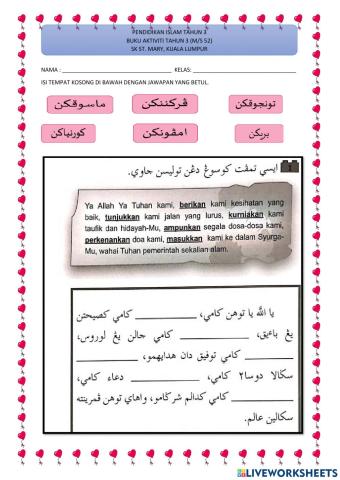 PENDIDIKAN ISLAM TAHUN 3
BUKU AKTIVITI TAHUN 3 (M/S 52)
SK ST. MARY, KUALA LUMPUR
NAMA : ______________________ KELAS: ______________________
ISI TEMPAT KOSONG DI BAWAH DENGAN JAWAPAN YANG BETUL.
ماسوقكن ڤركننكن تونجوقكن
كورنياكن امڤونكن بريكن
ايسي تمڤت كوسوڠ دڠن توليسن جاوي.
Ya Allah Ya Tuhan kami, berikan kami kesihatan yang
baik, tunjukkan kami jalan yang lurus, kurniakan kami
taufik dan hidayah-Mu, ampunkan segala dosa-dosa kami,
perkenankan doa kami, masukkan kami ke dalam Syurga-
Mu, wahai Tuhan pemerintah sekalian alam.
يا الله يا توهن كامي، __________ كامي كصيحتن
يڠ باءيق، __________ كامي جالن يڠ لوروس،
__________ كامي توفيق دان هدايهمو، __________
سكالا دوسا٢ كامي، __________ دعاء كامي،
__________ كامي كدالم شرݢامو، واهاي توهن ڤمرينته
سكالين عالم.
LIVEWORKSHEETS